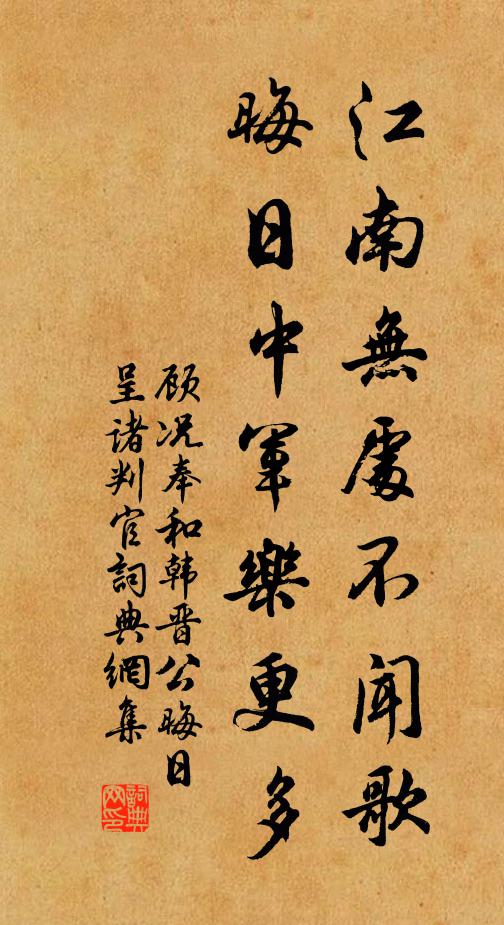 江南無處不闻歌
晦日中軍樂更多
顾况奉和韩晋公晦日
呈诸判官詞典網集
詞典網印